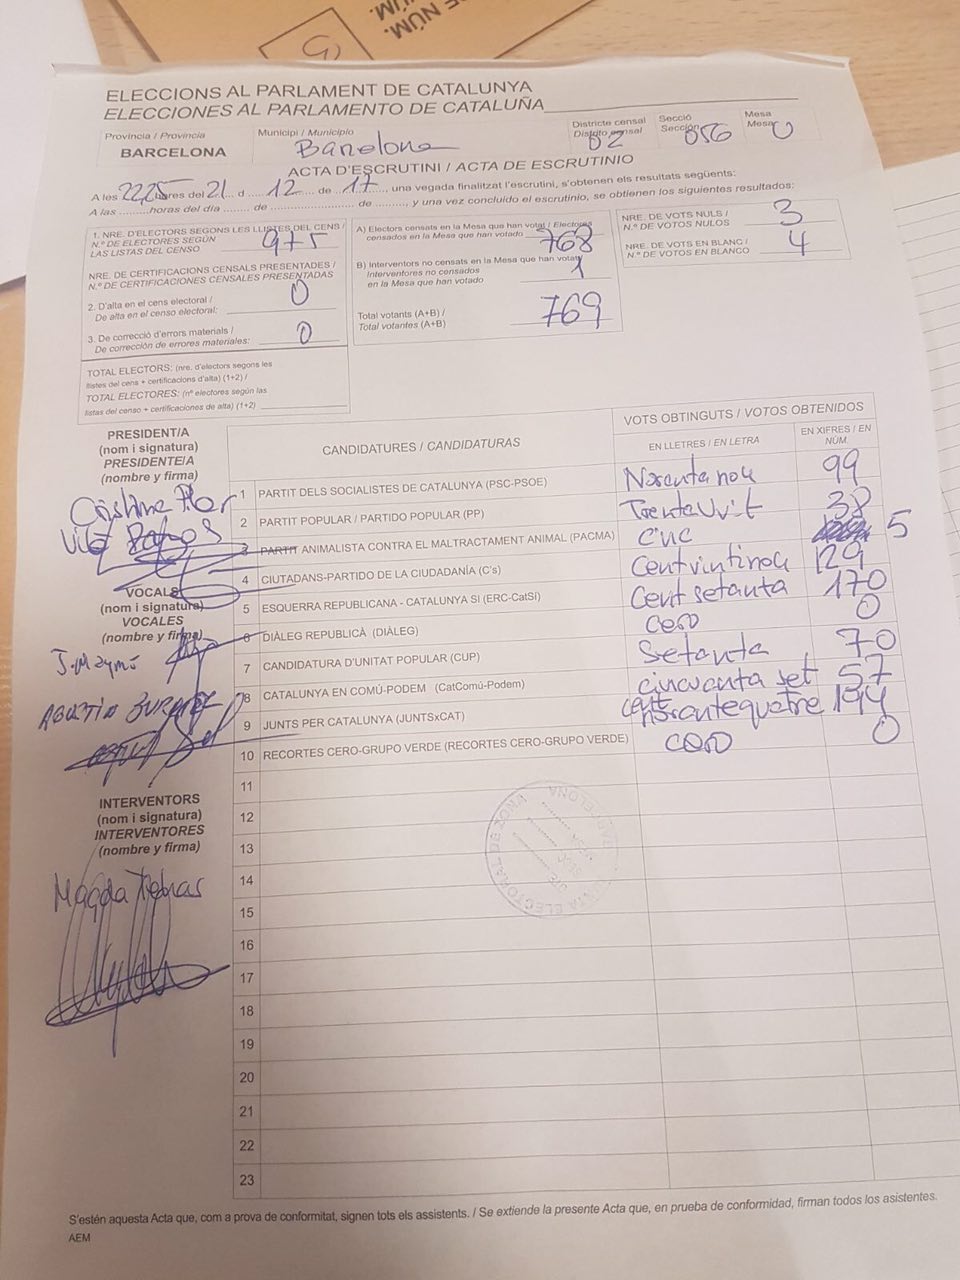 DE NÚM.
NÚM.
ELECCIONS AL PARLAMENT DE CATALUNYA
ELECCIONES AL PARLAMENTO DE CATALUÑA
Província / Provincia
BARCELONA
Municipi / Municipio
Barcelona
Districte censal
Distrito censal
02
Secció
Sección
056
Mesa
Mesa
U
ACTA D'ESCRUTINI / ACTA DE ESCRUTINIO
A les 2225 hores del 21 d 12 de 17, una vegada finalitzat l'escrutini, s'obtenen els resultats següents:
A las .........horas del día ....... de ..................... de ......., y una vez concluido el escrutinio, se obtienen los siguientes resultados:
1. NRE. D'ELECTORS SEGONS LES LLISTES DEL CENS /
N.º DE ELECTORES SEGÚN
LAS LISTAS DEL CENSO
975
NRE. DE CERTIFICACIONS CENSALS PRESENTADES /
N.º DE CERTIFICACIONES CENSALES PRESENTADAS
2. D'alta en el cens electoral /
De alta en el censo electoral:
0
3. De correcció d'errors materials /
De corrección de errores materiales:
0
TOTAL ELECTORS: (nre. d'electors segons les
llistes del cens + certificacions d'alta) (1+2) /
TOTAL ELECTORES: (nº electores según las
listas del censo + certificaciones de alta) (1+2)
A) Electors censats en la Mesa que han votat / Electores
censados en la Mesa que han votado
768
B) Interventors no censats en la Mesa que han votat/
Interventores no censados
en la Mesa que han votado
1
Total votants (A+B) /
Total votantes (A+B)
769
NRE. DE VOTS NULS /
N.º DE VOTOS NULOS
3
NRE. DE VOTS EN BLANC /
N.º DE VOTOS EN BLANCO
4
PRESIDENT/A
(nom i signatura)
PRESIDENTE/A
(nombre y firma)
VOCALS
(nom i signatura)
VOCALES
(nombre y firma)
J. Maymó
INTERVENTORS
(nom i signatura)
INTERVENTORES
(nombre y firma)
Magda
CANDIDATURES / CANDIDATURAS
VOTS OBTINGUTS / VOTOS OBTENIDOS
EN LLETRES / EN LETRA
EN XIFRES / EN NÚM.
1 PARTIT DELS SOCIALISTES DE CATALUNYA (PSC-PSOE) Noranta nou 99
2 PARTIT POPULAR / PARTIDO POPULAR (PP) Trenta Vuit 38
3 PARTIT ANIMALISTA CONTRA EL MALTRACTAMENT ANIMAL (PACMA) Cinc 5
4 CIUTADANS-PARTIDO DE LA CIUDADANÍA (C's) Cent vinti nou 129
5 ESQUERRA REPUBLICANA - CATALUNYA SI (ERC-CatSí) Cent setanta 170
6 DIÀLEG REPUBLICÀ (DIÀLEG) cero 0
7 CANDIDATURA D'UNITAT POPULAR (CUP) Setanta 70
8 CATALUNYA EN COMÚ-PODEM (CatComú-Podem) cincuanta set 57
9 JUNTS PER CATALUNYA (JUNTSxCAT) cent norantequatre 194
10 RECORTES CERO-GRUPO VERDE (RECORTES CERO-GRUPO VERDE) cero 0
11
12
13
14
15
16
17
18
19
20
21
22
23
JUNTA ELECTORAL DE ZONA
BARCELONA
S'estén aquesta Acta que, com a prova de conformitat, signen tots els assistents. / Se extiende la presente Acta que, en prueba de conformidad, firman todos los asistentes.
AEM